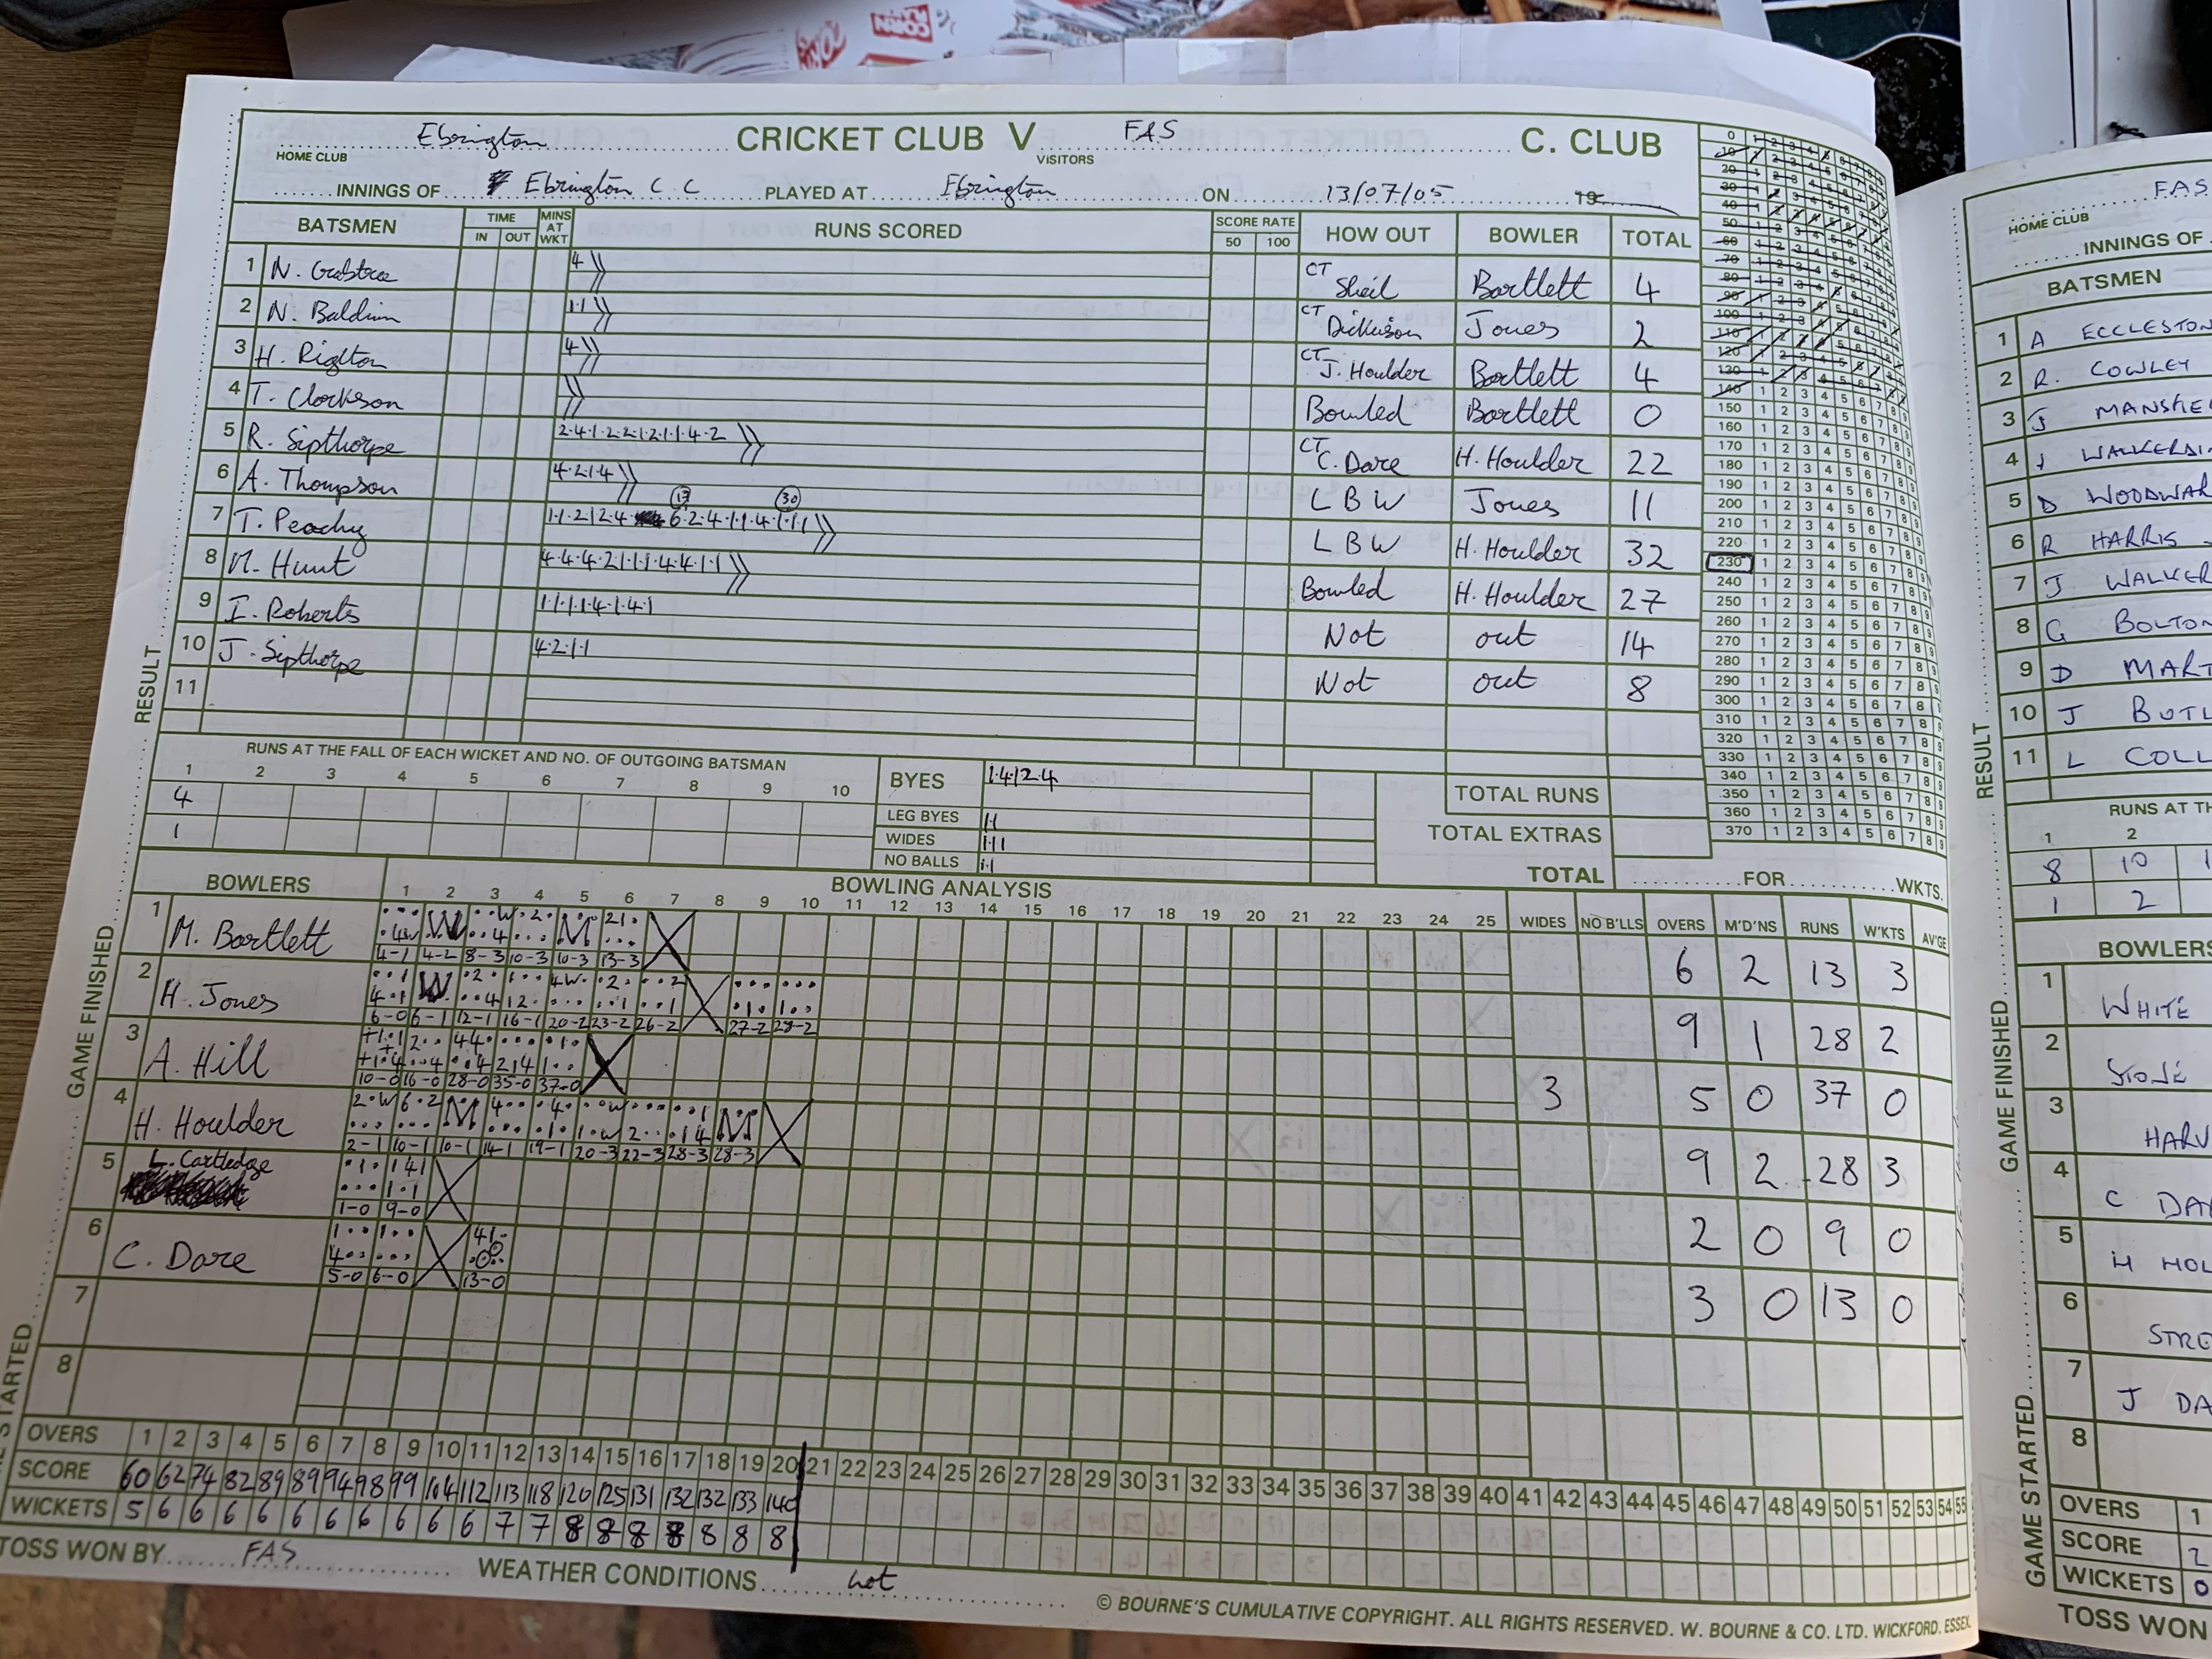 Ebrington CRICKET CLUB V FAS C. CLUB
HOME CLUB VISITORS
INNINGS OF Ebrington C.C PLAYED AT Ebrington ON 13/07/05 19
BATSMEN TIME IN OUT MINS AT WKT RUNS SCORED SCORE RATE 50 100 HOW OUT BOWLER TOTAL
1 N. Crabtree 4 CT Sheil Bartlett 4
2 N. Baldwin 1·1 CT Dickinson Jones 2
3 H. Righton 4 CT J. Houlder Bartlett 4
4 T. Clarkson Bowled Bartlett 0
5 R. Sipthorpe 2·4·1·2·2·1·2·1·1·4·2 CT C. Dare H. Houlder 22
6 A. Thompson 4·2·1·4 LBW Jones 11
7 T. Peachy 1·1·2·1·2·4 6·2·4·1·1·4·1·1·1 LBW H. Houlder 32
8 M. Hunt 4·4·4·2·1·1·1·4·4·1·1 Bowled H. Houlder 27
9 I. Roberts 1·1·1·1·4·1·4·1 Not out 14
10 J. Sipthorpe 4·2·1·1 Not out 8
11
RUNS AT THE FALL OF EACH WICKET AND NO. OF OUTGOING BATSMAN
1 2 3 4 5 6 7 8 9 10
4
1
BYES 1·4·1·2·4
LEG BYES 1·1
WIDES 1·1·1
NO BALLS 1·1
TOTAL RUNS
TOTAL EXTRAS
TOTAL FOR WKTS.
BOWLERS BOWLING ANALYSIS
1 2 3 4 5 6 7 8 9 10 11 12 13 14 15 16 17 18 19 20 21 22 23 24 25 WIDES NO B'LLS OVERS M'D'NS RUNS W'KTS AV'GE
1 M. Bartlett 4-1 4-2 8-3 10-3 10-3 13-3 6 2 13 3
2 H. Jones 6-0 6-1 12-1 16-1 20-2 23-2 26-2 27-2 28-2 9 1 28 2
3 A. Hill 10-0 16-0 28-0 35-0 37-0 3 5 0 37 0
4 H. Houlder 2-1 10-1 10-1 14-1 19-1 20-3 22-3 28-3 28-3 9 2 28 3
5 L. Cartledge 1-0 9-0 2 0 9 0
6 C. Dare 5-0 6-0 13-0 3 0 13 0
7
8
OVERS 1 2 3 4 5 6 7 8 9 10 11 12 13 14 15 16 17 18 19 20 21 22 23 24 25 26 27 28 29 30 31 32 33 34 35 36 37 38 39 40 41 42 43 44 45 46 47 48 49 50 51 52 53 54 55
SCORE 60 62 74 82 89 89 94 98 99 104 112 113 118 120 125 131 132 132 133 140
WICKETS 5 6 6 6 6 6 6 6 6 6 6 7 7 8 8 8 8 8 8 8
TOSS WON BY FAS WEATHER CONDITIONS hot
© BOURNE'S CUMULATIVE COPYRIGHT. ALL RIGHTS RESERVED. W. BOURNE & CO. LTD. WICKFORD. ESSEX.
RESULT
GAME FINISHED
STARTED
FAS
HOME CLUB
INNINGS OF
BATSMEN
1 A ECCLESTON
2 R. COWLEY
3 J MANSFIE
4 WALKERDI
5 D WOODWAR
6 R HARRIS
7 J WALKER
8 G BOLTON
9 D MART
10 J BUTL
11 L COLL
RESULT
RUNS AT TH
1 2
8 10
1 2
BOWLERS
1 WHITE
2
3 HARV
4 C DA
5 H HOL
6 STRE
7 J DA
8
GAME FINISHED
GAME STARTED
OVERS 1
SCORE 2
WICKETS 0
TOSS WON